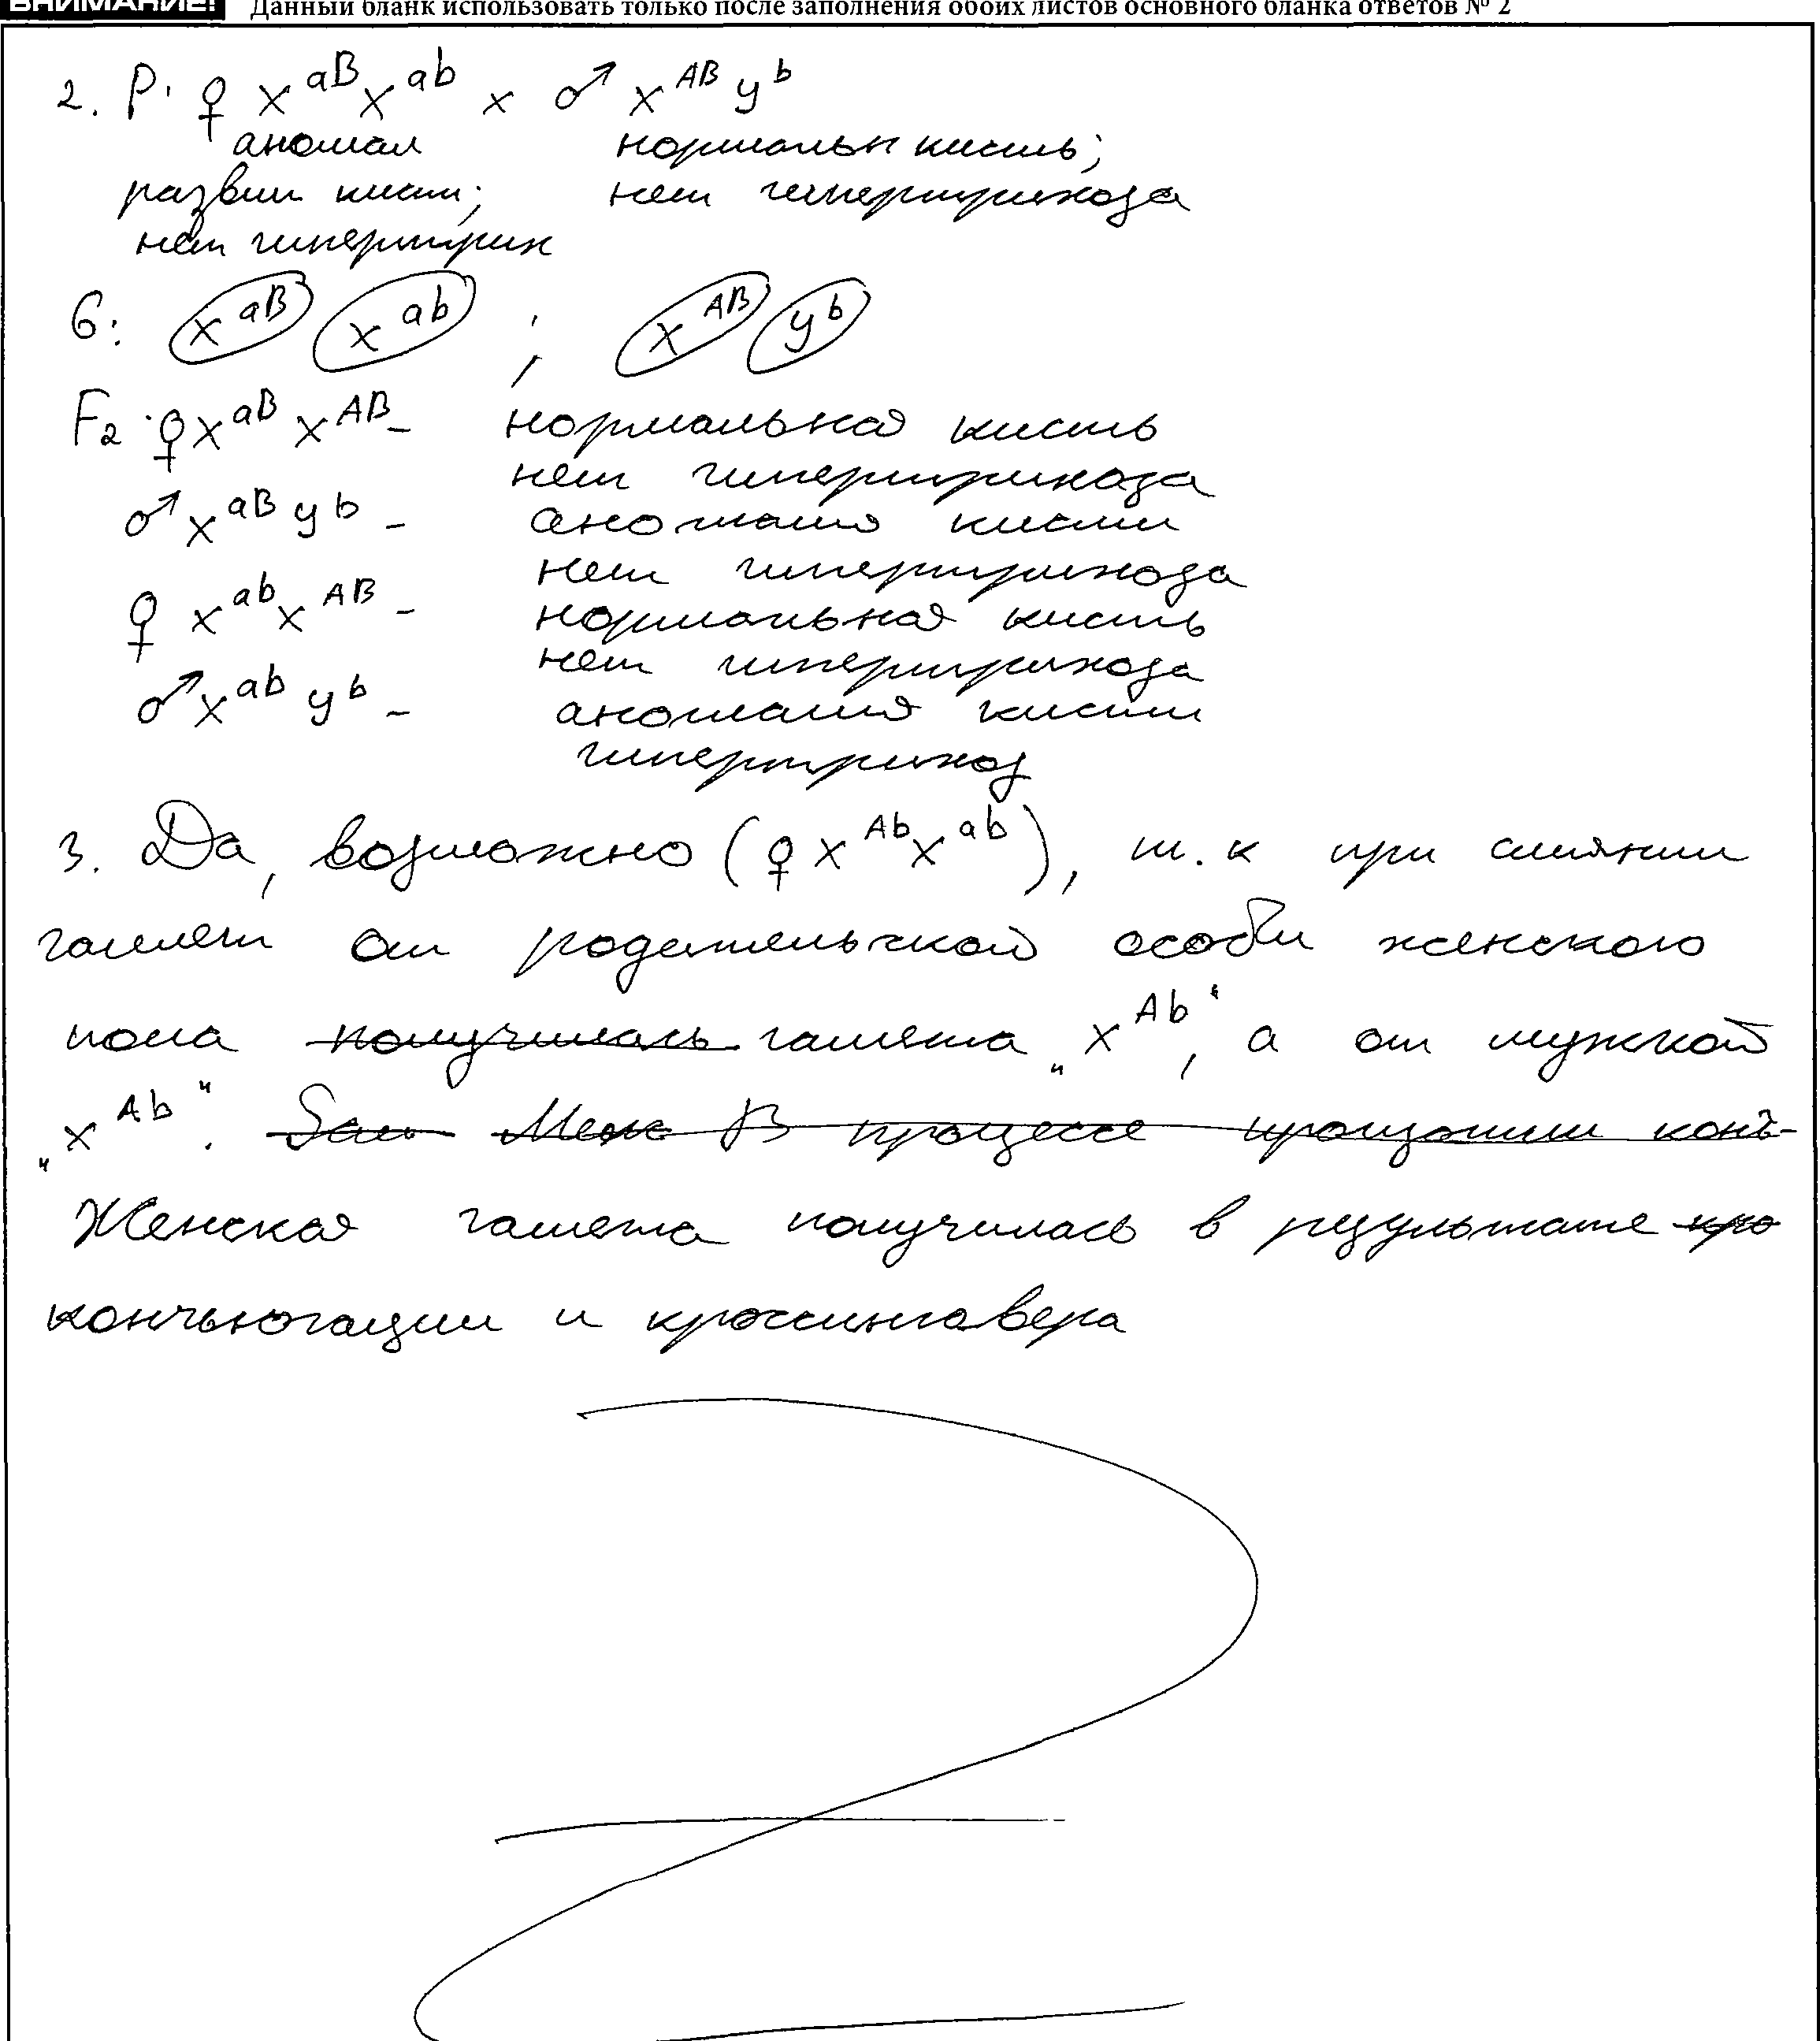 ВНИМАНИЕ! Данный бланк использовать только после заполнения обоих листов основного бланка ответов № 2
2. P: ♀ X^aB X^ab × ♂ X^AB y^b
аномал нормальн кисть;
развит кист; нет гипертрихоза
нет гипертрих
G: X^aB X^ab ; X^AB y^b
F2: ♀ X^aB X^AB – нормальная кисть
нет гипертрихоза
♂ X^aB y^b – аномалия кисти
нет гипертрихоза
♀ X^ab X^AB – нормальная кисть
нет гипертрихоза
♂ X^ab y^b – аномалия кисти
гипертрихоз
3. Да, возможно (♀ X^Ab X^ab), т.к при слиянии
гамет от родительской особи женского
пола получилась гамета „X^Ab“, а от мужской
„X^Ab“. В процессе конъ-
Женская гамета получилась в результате кро
кончьюгации и кроссинговера